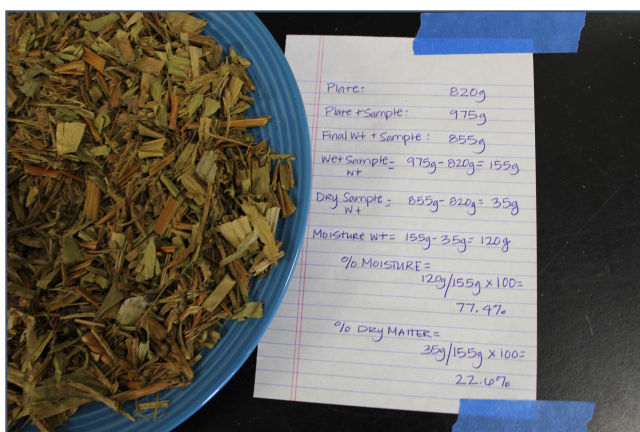 Plate: 820g
Plate + Sample: 975g
Final Wt + Sample: 855g
Wet Sample = 975g - 820g = 155g
Wt
Dry Sample = 855g - 820g = 35g
Wt
Moisture Wt = 155g - 35g = 120g
% MOISTURE =
120g/155g x 100 =
77.4%
% Dry MATTER =
35g/155g x 100 =
22.6%